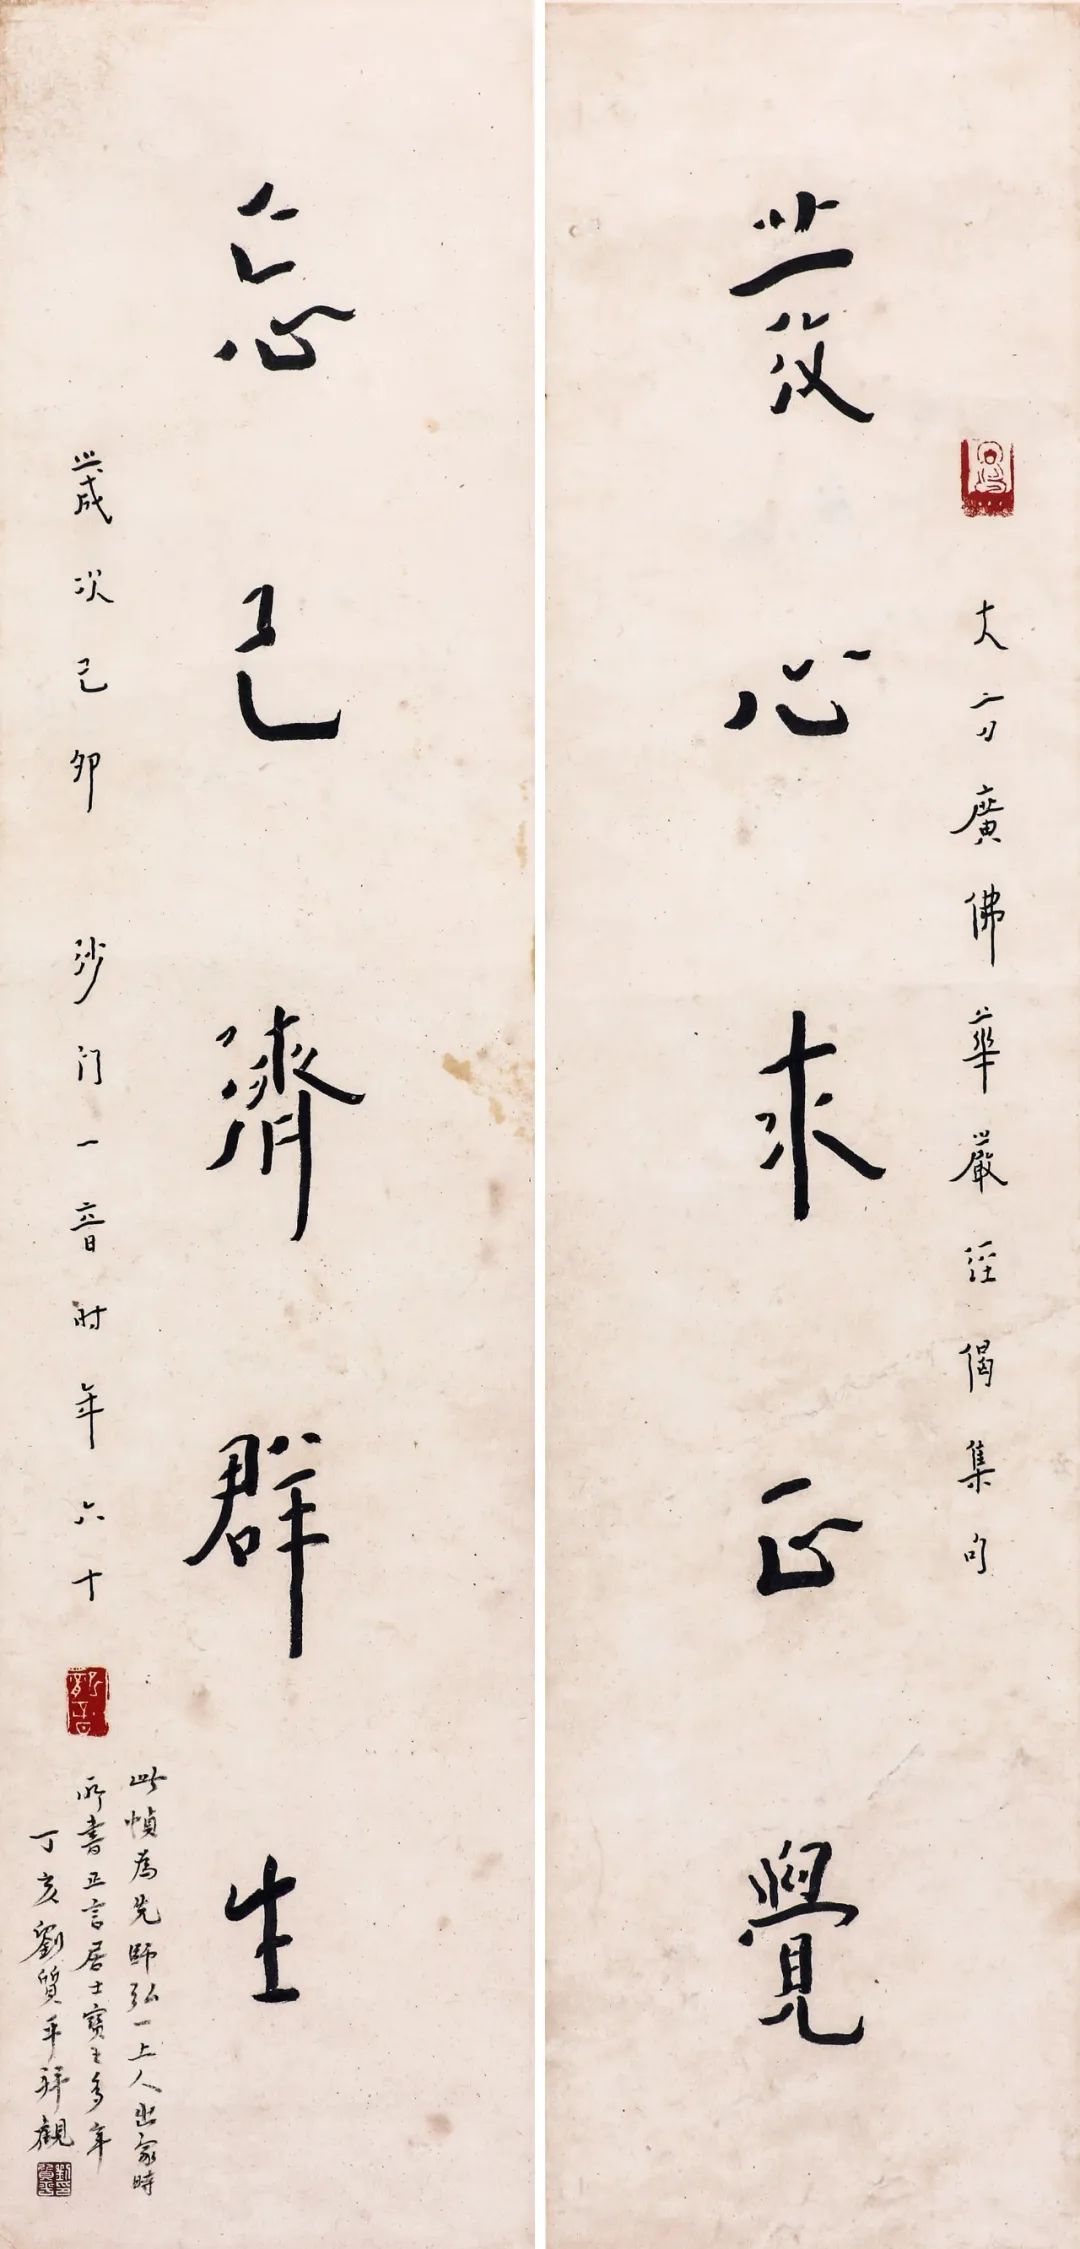 發心求正覺
大方廣佛華嚴經偈集句
忘己濟群生
歲次己卯 沙门一音时年六十
此幀為先師弘一上人出家時
所書正言居士寶之多年
丁亥劉質平拜觀